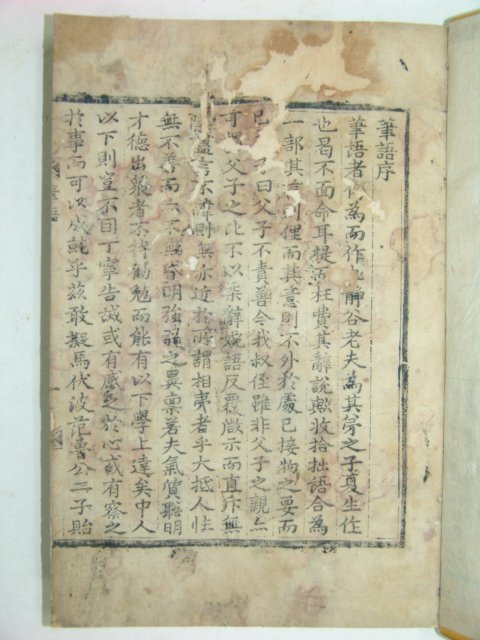 筆語序
筆語者何為而作也静谷老夫為其旁之子夏生作
也曷不面命耳提而枉費其辭說歟收拾拙語合為
一部其則俚而其意則不外於處己接物之要而
已曰父子不責善今我叔侄雖非父子之親亦
可父子之此不以柔辭婉語反覆徵示而直斥無
盖言不諱則無亦近於所謂相夷者乎大抵人性
無不善而亦不無昏明強弱之異稟者夫氣質聡明
才德出衆者不待勸勉而能有以下學上達矣中人
以下則豈不因丁寧告誡或有感之於心或有察之
於事而可以成就乎玆敢擬馬伏波范魯公二子貽